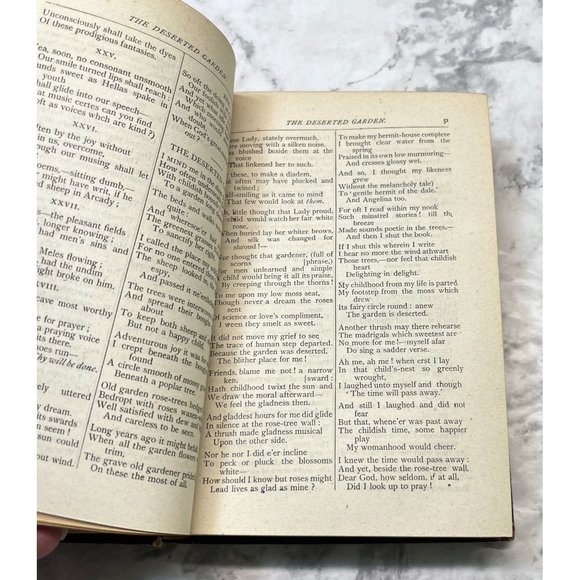 Unconsciously shall take the dyes
Of these prodigious fantasies.
XXV.
soon, no consonant unsmooth
Our smile turned lips shall reach
sounds sweet as Hellas spake in
youth
shall glide into our speech—
at music certes can you find
oft as voices which are kind?)
XXVI.
often by the joy without
in us, overcome,
through our musing shall let
poems,—sitting dumb,—
might have writ if he
sheep in Arcady;
XXVII.
the pleasant fields
longer knowing;
had men's sins and
Meles flowing;
had the undim
bought broke on him.
XXVIII.
cave most worthy
for prayer;
a praying voice
does run—
Thy will be done.
uttered
dream,
so,
sun could
out wind.
THE DESERTED GARDEN.
So oft the doing
And yet
Which
And who
doubt
When God's
out?
THE DESERTED
I MIND me in the days
How often underneath
To a garden long
The beds and walks
quite;
And wheresoe'er
The greenest grasses
To sanctify her
I called the place my
For no one entered
The sheep looked in,
espy
The trees were interwoven
And spread their boughs
about
To keep both sheep and
But not a happy child.
Adventurous joy it was for
I crept beneath the boughs
found
A circle smooth of mossy ground
Beneath a poplar tree.
Old garden rose-trees hedged
Bedropt with roses waxen-white
Well satisfied with dew and
And careless to be seen.
Long years ago it might befall,
When all the garden flowers
trim,
The grave old gardener prided
On these the most of all.
THE DESERTED GARDEN.
51
Some Lady, stately overmuch,
moving with a silken noise,
blushed beside them at the
voice
That likened her to such.
these, to make a diadem,
often may have plucked and
twined;
Half-smiling as it came to mind
That few would look at them.
little thought that Lady proud,
child would watch her fair white
rose,
When buried lay her whiter brows,
And silk was changed for
shroud!—
Nor thought that gardener, (full of
scorns [phrase,)
For men unlearned and simple
child would bring it all its praise,
By creeping through the thorns!
To me upon my low moss seat,
Though never a dream the roses
sent
Of science or love's compliment,
I ween they smelt as sweet.
It did not move my grief to see
The trace of human step departed.
Because the garden was deserted,
The blither place for me!
Friends, blame me not! a narrow
ken, [sward:
Hath childhood twixt the sun and
We draw the moral afterward—
We feel the gladness then.
And gladdest hours for me did glide
In silence at the rose-tree wall:
A thrush made gladness musical
Upon the other side.
Nor he nor I did e'er incline
To peck or pluck the blossoms
white—
How should I know but roses might
Lead lives as glad as mine?
To make my hermit-house complete
I brought clear water from the
spring
Praised in its own low murmuring—
And cresses glossy wet.
And so, I thought my likeness
grew
(Without the melancholy tale)
To gentle hermit of the dale,
And Angelina too.
For oft I read within my nook
Such minstrel stories! till the
breeze
Made sounds poetic in the trees,—
And then I shut the book.
If I shut this wherein I write
I hear no more the wind athwart
Those trees,—nor feel that childish
heart
Delighting in delight.
My childhood from my life is parted
My footstep from the moss which
drew
Its fairy circle round: anew
The garden is deserted.
Another thrush may there rehearse
The madrigals which sweetest are
No more for me!—myself afar
Do sing a sadder verse.
Ah me, ah me! when erst I lay
In that child's-nest so greenly
wrought,
I laughed unto myself and though
'The time will pass away.'
And still I laughed and did not
fear
But that, whene'er was past away
The childish time, some happier
play
My womanhood would cheer.
I knew the time would pass away:
And yet, beside the rose-tree wall,
Dear God, how seldom, if at all,
Did I look up to pray!